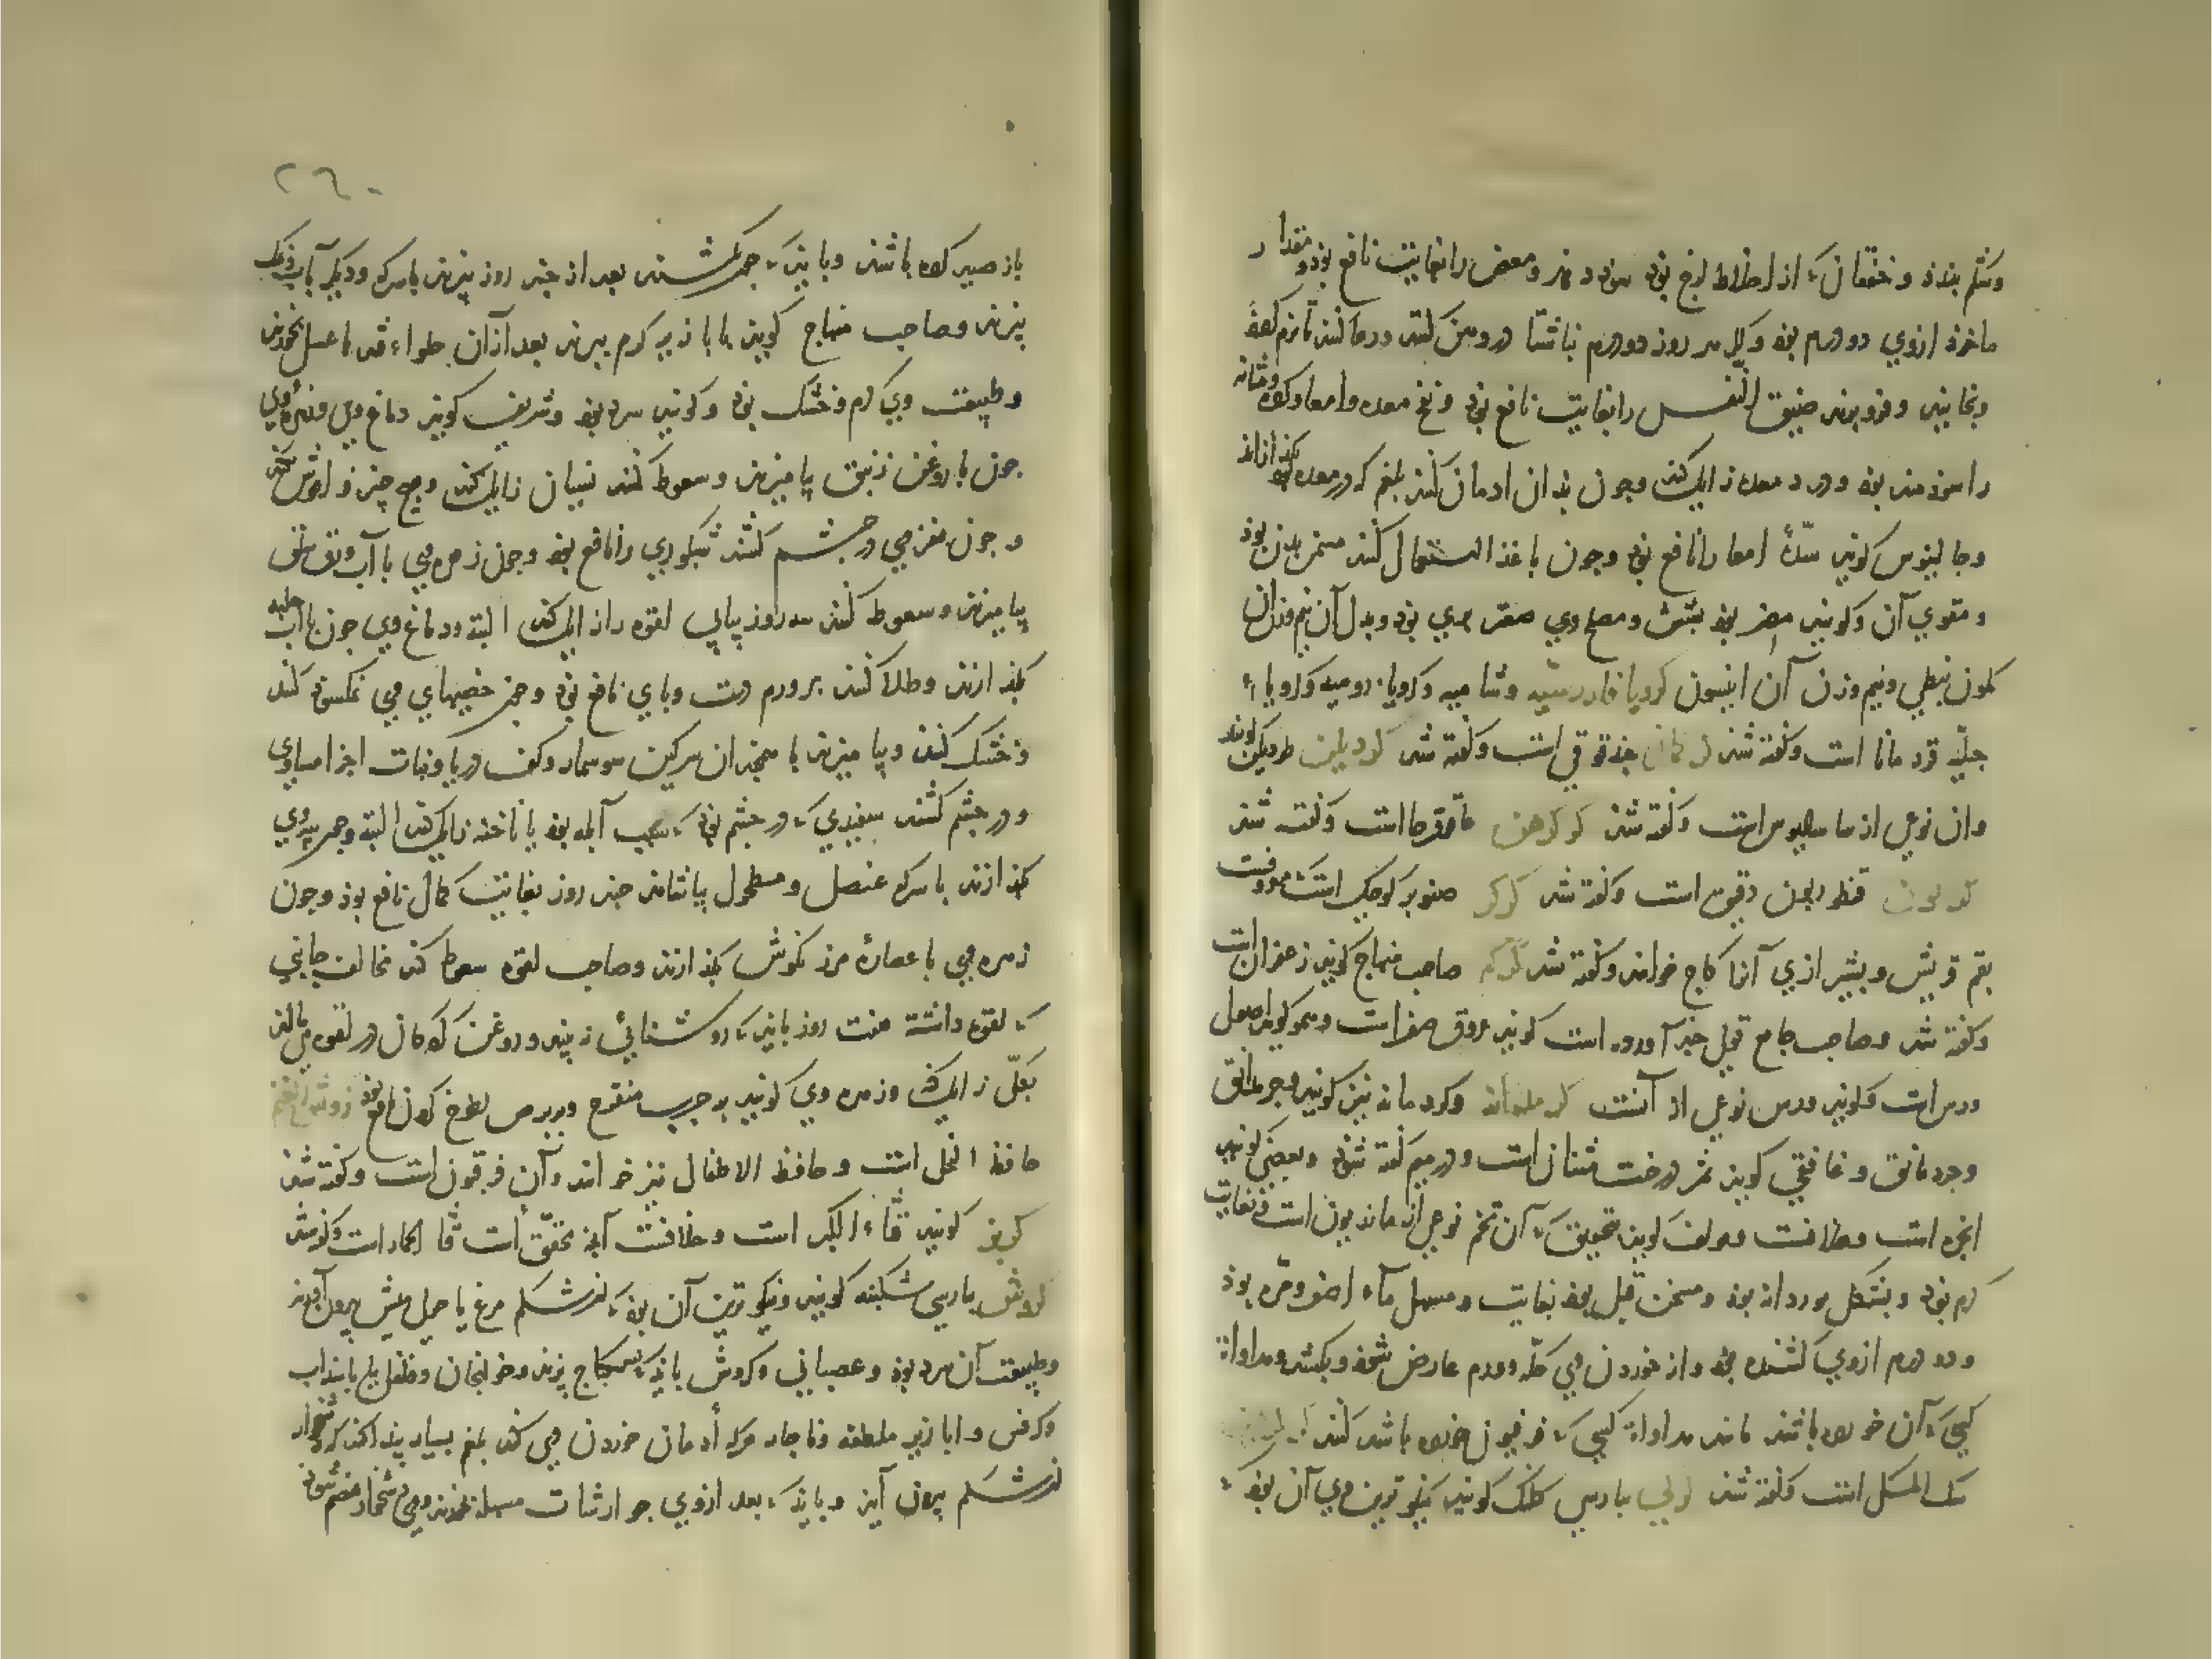 وشکم بندد و خفقان که از اخلاط لزج بود سود دهد و مغص را بغایت نافع بود و مقدار
ماخوذ ازوی دو درم بود و کر هر روز دو درم ناشتا در دهن کنند و رها کنند تا نرم کردد
و بخایند و فرو برند ضیق النفس را بغایت نافع بود و نفخ معده و امعا و کرده و مثانه
را سودمند بود و درد معده زایل کند و چون بدان ادمان کنند بلغم که در معده بود بکدازاند
و جالینوس کویند سدّهٔ امعا را نافع بود و چون با غذا استعمال کنند مسخن بدن بود
و مقوی آن و کویند مضر بود بشش و مصلح وی صعتر بری بود و بدل آن نیم وزن آن
کمون نبطی و نیم وزن آن انیسون کرویا فارسیه و شامیه و کرویا رومیه و کرویاء
جبلیّه قردمانا است و کفته شد کرکمان حندقوقی است و کفته شد کردیلین طردیلن کویند
و آن نوعی از ساسالیوس است و کفته شد کرکرهن عاقرقرحا است و کفته شد
قنطوریون دقیق است و کفته شد کرکر صنوبر کوچک است معروفست
بقم قریش و بشیرازی آنرا کاج خوانند و کفته شد کرکم صاحب منهاج کویند زعفران است
و کفته شد و صاحب جامع قول خیر آورده است کویند عروق صفر است و هم کویند اصول
ورس است و کویند ورس نوعی از آنست کرمدانه و کردمانه نیز کویند و جرمدانق
و جردمانق و غافقی کویند ثمر درخت مثنان است و در میم کفته شود و بعضی کویند
انجره است و خلافست و مولف کویند تحقیق که آن تخم نوعی از مازریون است و بغایت
کرم بود و بشکل مورددانه بود و مسخن قبل بود بغایت و مسهل ماء اصفر و مرّه بود
و دو درم ازوی کشنده بود و از خوردن وی حکه و ورم عارض شود و بکشد و مداواة
کسی که آن خورده باشد مانند مداواة کسی که فرفیون خورده باشد کنند
سک المسک است و کفته شد کرکی بپارسی کلنک کویند نیکوترین وی آن بود که
۲۶۰
باز صید کرده باشند و باید که چون بکشند بعد از چند روز بپزند با سرکه و دیکر بآب و نمک
بپزند و صاحب منهاج کویند با ابازیر کرم بپزند بعد از آن حلواء قند یا عسل بخورند
و طبیعت وی کرم و خشک بود و کویند سرد بود و شریف کویند دماغ وی و زهره وی
چون با روغن زنبق بیامیزند و سعوط کنند نسیان زایل کند و هیچ چیز فراموش نکند
و چون مغز وی در چشم کشند شبکوری را نافع بود و چون زهره وی با آب ورق سلق
بیامیزند و سعوط کنند سه روز پیاپی لقوه را زایل کند البته و دماغ وی چون با آب حلبه
بکدازند و طلا کنند بر ورم دست و پای نافع بود و چون خصیهای وی نمکسود کنند
و خشک کنند و بیامیزند با همچندان سرکین سوسمار و کف دریا و نبات اجزا مساوی
و در چشم کشند سپیدی که در چشم بود که سبب آبله بود یا ناخنه زایل کند البته و چون پیه وی
بکدازند با سرکه عنصل و مطحول بیاشامد چند روز بغایت کمال نافع بود و چون
زهره وی با عصارهٔ مرزنکوش بکدازند و صاحب لقوه سعوط کند مخالف جانبی
که لقوه داشته هفت روز باید که روشنائی نبیند و روغن کردکان در لقوه می مالد
بکلّی زایل شود و زهره وی کویند بر جرب متقرح و برص لطوخ کردن نافع بود
حافظ النحل است و حافظ الاطفال نیز خوانند و آن فریقون است و کفته شد
کویند قثاء الکبر است و خلافست آنچه محقق است قثاء الحمار است و کفته شد
کروش بپارسی شکنبه کویند و نیکوترین آن بود که از شکم مرغ یا حمل میش بیرون آورند
و طبیعت آن سرد بود و عصبانی و کروش باید که بسکباج بپزند و خولنجان و فلفل با سداب
و کرفس و ابازیر ملطفه و ناچار هرکه ادمان خوردن وی کند بلغم بسیار پیدا کند که دشخوار
از شکم بیرون آید و باید که بعد ازوی جوارشات مسهله بخورند و وی دشخوار هضم شود